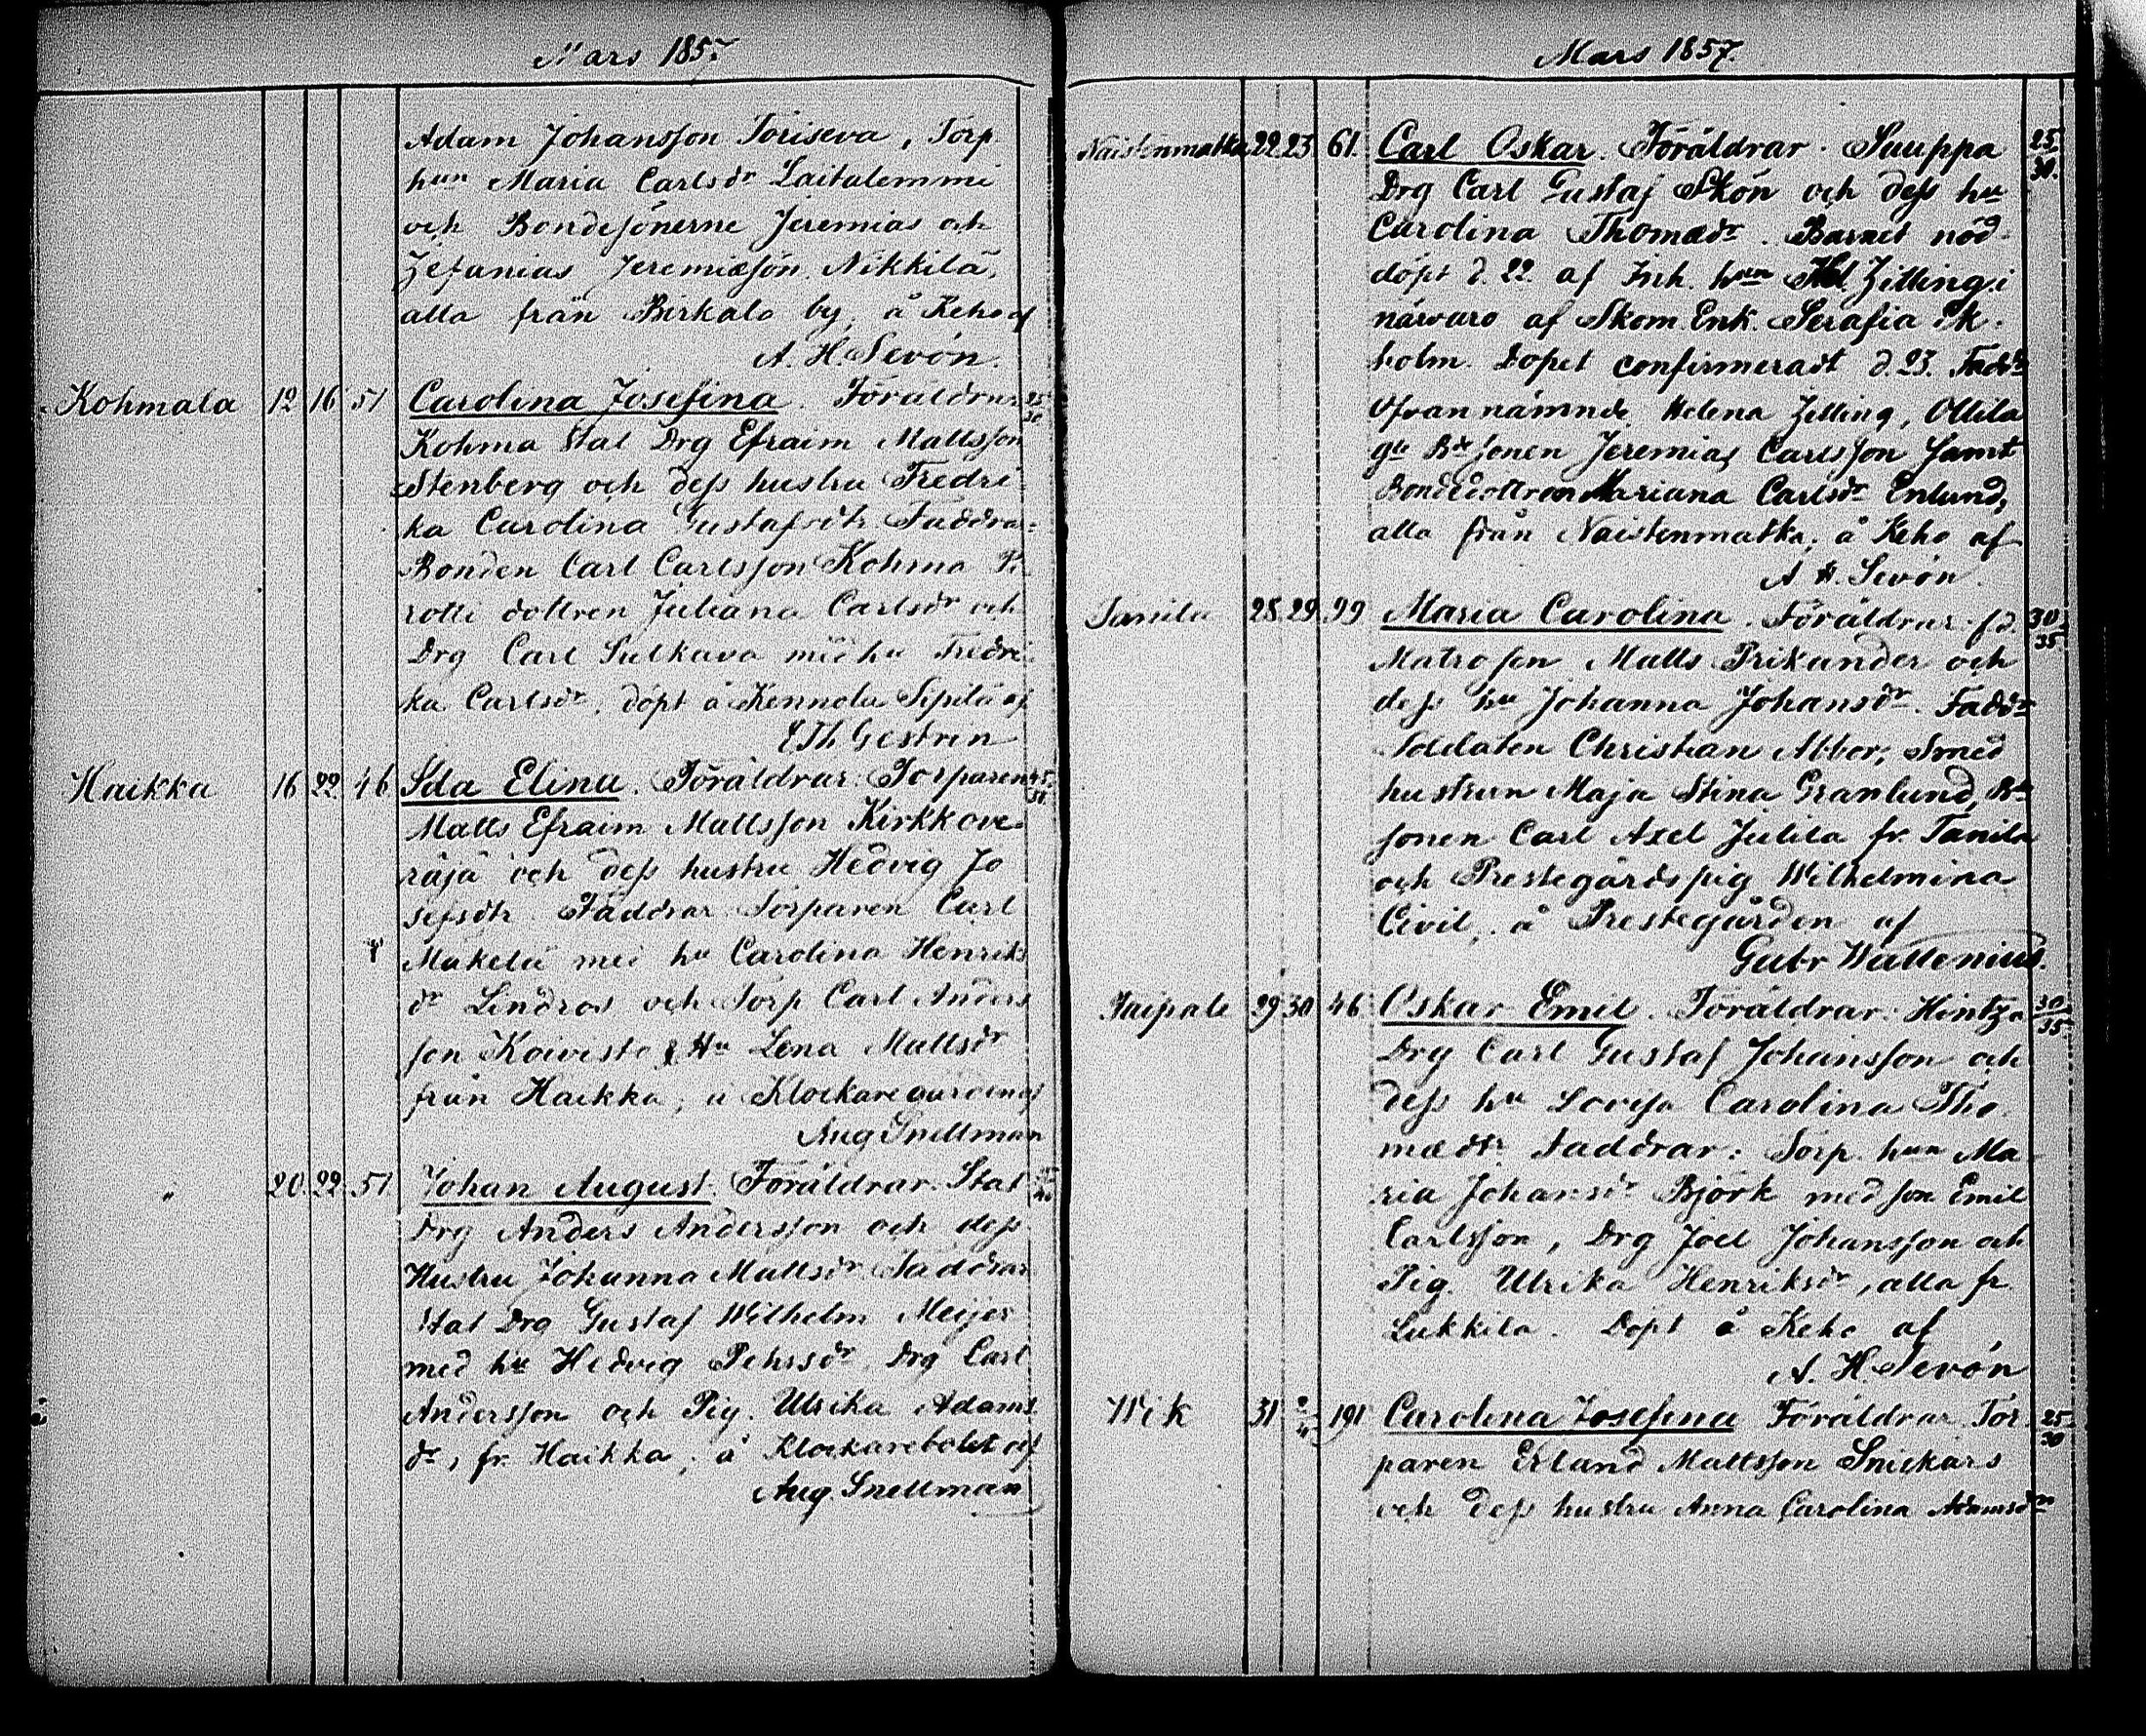 Mars 1857
Adam Johansson Toriseva, Torp
hun Maria Carlsdr Laitalemmi
och Bondesönerne Jeremias och
Zefanias Jeremiæsön Nikkilä,
alla från Birkala by; å Keho af
A. H. Sevón.
Kohmala 12 16 51 Carolina Josefina. Föräldrar 25/30
Kohma Stat Drg Efraim Mattsson
Stenberg och dess hustru Fredri-
ka Carolina Gustafsdtr. Faddrar:
Bonden Carl Carlsson Kohma
rotti dottren Juliana Carlsdr och
Drg Carl Sulkava med hu Fredri-
ka Carlsdr, döpt å Kennola Sipilä af
E Th Gestrin
Haikka 16 22 46 Ida Elina. Föräldrar: Torparen
Matts Efraim Mattsson Kirkkove-
räjä och dess hustru Hedvig Jo
sefsdtr. Faddrar Torparen Carl
Mäkelä med hu Carolina Henriks
dr Lindros och Torp Carl Anders
son Koivisto & Hu Lena Mattsdr
från Haikka; å Klockaregården af
Aug Snellman
" 20. 22. 51 Johan August. Föräldrar: Stat
Drg Anders Andersson och dess
Hustru Johanna Mattsdr Faddrar
Stat Drg Gustaf Wilhelm Meijer
med hu Hedvig Pehrsdr, Drg Carl
Andersson och Pig. Ulrika Adams
dr, fr. Haikka; å Klockarebolet af
Aug. Snellman
Mars 1857.
Naistenmatka 22. 23 61. Carl Oskar. Föräldrar. Sauppa 25/30.
Drg Carl Gustaf Skön och dess hu
Carolina Thomædr. Barnet nöd-
döpt d. 22. af Inh. hun Hel. Zitting i
närvaro af Skom. Enk. Serafia Ek-
holm. Dopet confirmeradt d. 23. Faddr
Ofvannämnde Helena Zitting, Ottila
gls Bdesonen Jeremias Carlsson samt
Bondedottren Mariana Carlsdr Enlund,
alla från Naistenmatka; å Keho af
A. H. Sevón.
Tanila 28. 29. 99 Maria Carolina. Föräldrar f.d. 30/35.
Matrosen Matts Prikander och
dess hu Johanna Johansdr. Faddr
Soldaten Christian Abbor, Smed
hustrun Maja Stina Granlund, Bde
sonen Carl Axel Julila fr. Tanila
och Prestegårdspig Wilhelmina
Civil, å Prestegården af
Gabr Wallenius.
Taipale 29 30 46 Oskar Emil. Föräldrar: Hintza 30/35
Drg Carl Gustaf Johansson och
dess hu Lovisa Carolina Tho-
mædtr Faddrar: Torp. hun Ma-
ria Johansdr Björk med son Emil
Carlsson, Drg Joel Johansson och
Pig. Ulrika Henriksdr, alla fr.
Lukkila. Döpt å Keho af
A. H. Sevón
Wik 31 2/4 191 Carolina Josefina Föräldrar Tor 25/30
paren Erland Mattsson Snickars
och dess hustru Anna Carolina Adamsdr